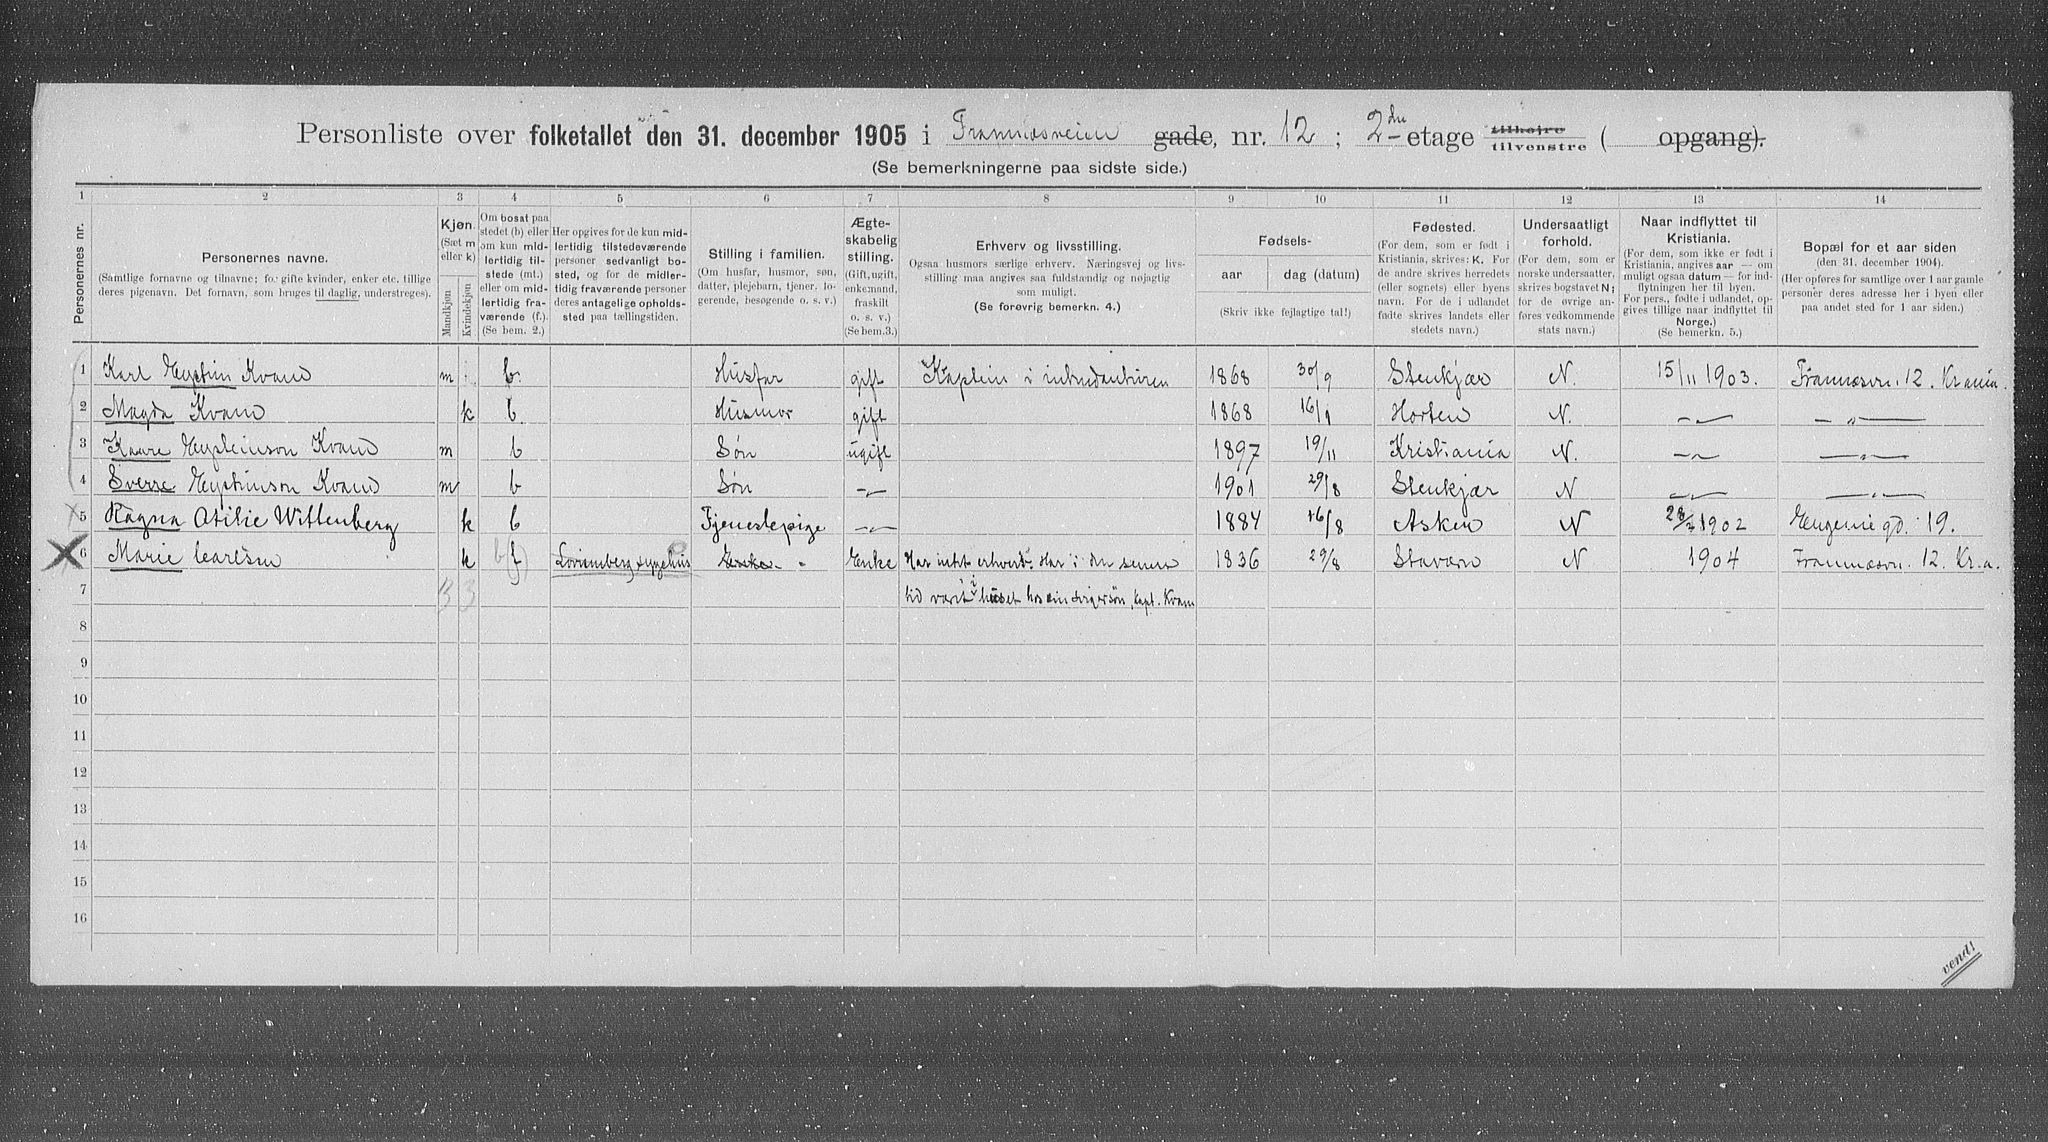 Personliste over folketallet den 31. december 1905 i Framnæsveien gade, nr. 12 ; 2den etage tilhøjre tilvenstre ( opgang).
(Se bemerkningerne paa sidste side.)
1 2 3 4 5 6 7 8 9 10 11 12 13 14
Personernes nr.
Personernes navne.
(Samtlige fornavne og tilnavne; for gifte kvinder, enker etc. tillige
deres pigenavn. Det fornavn, som bruges til daglig, understreges).
Kjøn.
(Sæt m
eller k)
Mandkjøn
Kvindekjøn
Om bosat paa
stedet (b) eller
om kun mid-
lertidig til-
stede (mt.)
eller om mid-
lertidig fra-
værende (f.).
(Se bem. 2.)
Her opgives for de kun mid-
lertidig tilstedeværende
personer sedvanligt bo-
sted, og for de midler-
tidig fraværende personer
deres antagelige opholds-
sted paa tællingstiden.
Stilling i familien.
(Om husfar, husmor, søn,
datter, plejebarn, tjener, lo-
gerende, besøgende o. s. v.)
Ægte-
skabelig
stilling.
(Gift, ugift,
enkemand,
fraskilt
o. s. v.)
(Se bem.3.)
Erhverv og livsstilling.
Ogsaa husmors særlige erhverv. Næringsvej og livs-
stilling maa angives saa fuldstændig og nøjagtig
som muligt.
(Se forøvrig bemerkn. 4.)
Fødsels-
aar dag (datum)
(Skriv ikke fejlagtige tal!)
Fødested.
(For dem, som er født i
Kristiania, skrives: K. For
de andre skrives herredets
(eller sognets) eller byens
navn. For de i udlandet
fødte skrives landets eller
stedets navn.)
Undersaatligt
forhold.
(For dem, som er
norske undersaatter,
skrives bogstavet N;
for de øvrige an-
føres vedkommende
stats navn.)
Naar indflyttet til
Kristiania.
(For dem, som ikke er født i
Kristiania, angives aar — om
muligt ogsaa datum — for ind-
flytningen her til byen.
For pers., fødte i udlandet, op-
gives tillige naar indflyttet til
Norge.)
(Se bemerkn. 5.)
Bopæl for et aar siden
(den 31. december 1904).
(Her opføres for samtlige over 1 aar gamle
personer deres adresse her i byen eller
paa andet sted for 1 aar siden.)
1 Karl Eystein Kvam m b. Husfar gift Kaptein i intendanturen 1868 30/9 Stenkjær N. 15/11 1903. Framnæsvn. 12. Kr.ania.
2 Magda Kvam k b. Husmor gift 1868 16/9 Horten N. — „ — — „ —
3 Kaare Eysteinson Kvam m b Søn ugift 1897 19/11 Kristiania N. — „ — — „ —
4 Sverre Eysteinson Kvam m b Søn — „ — 1901 29/8 Stenkjær N — „ — — „ —
5 Ragna Otilie Wittenberg k b Tjenestepige — „ — 1884 16/8 Asker N 28/2 1902 Eugenie gd. 19.
6 Marie Carlsen k f Lovisenberg sygehus Enke Har intet erhverv. Har i den senere 1836 29/8 Stavern N 1904 Framnæsvn. 12. Kr.a.
7 33 tid været i huset hos sin svigersøn, kapt. Kvam
8
9
10
11
12
13
14
15
16
vend!